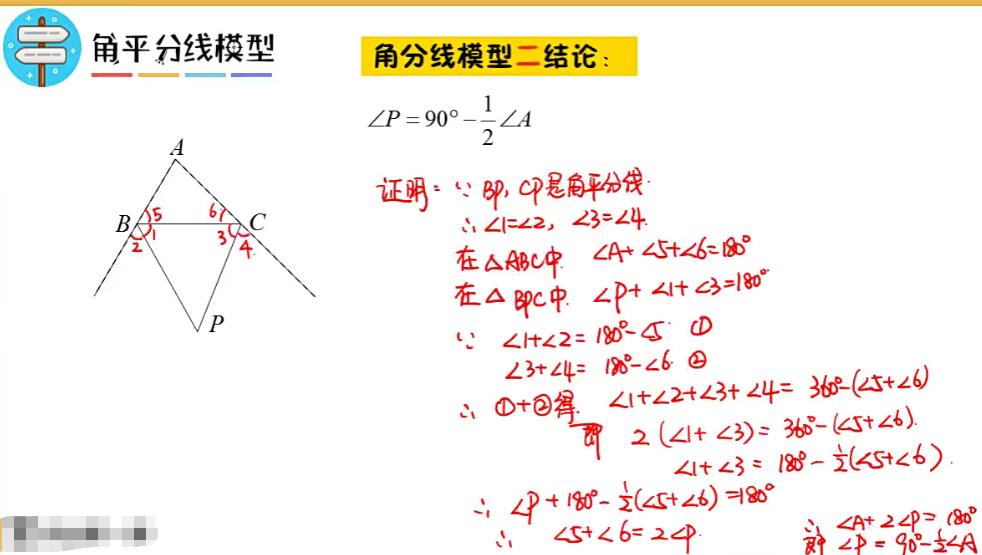 角平分线模型
角分线模型二结论:
∠P=90°-1/2∠A
A
B 5 6 C
2 1 3 4
P
证明: ∵ BP, CP是角平分线.
∴∠1=∠2, ∠3=∠4.
在△ABC中. ∠A+∠5+∠6=180°
在△BPC中. ∠P+∠1+∠3=180°
∵ ∠1+∠2=180°-∠5 ①
∠3+∠4=180°-∠6 ②
∴ ①+②得. ∠1+∠2+∠3+∠4=360°-(∠5+∠6)
即 2(∠1+∠3)=360°-(∠5+∠6).
∠1+∠3=180°-1/2(∠5+∠6).
∴ ∠P+180°-1/2(∠5+∠6)=180°
∴ ∠5+∠6=2∠P.
∴ ∠A+2∠P=180°
即 ∠P=90°-1/2∠A